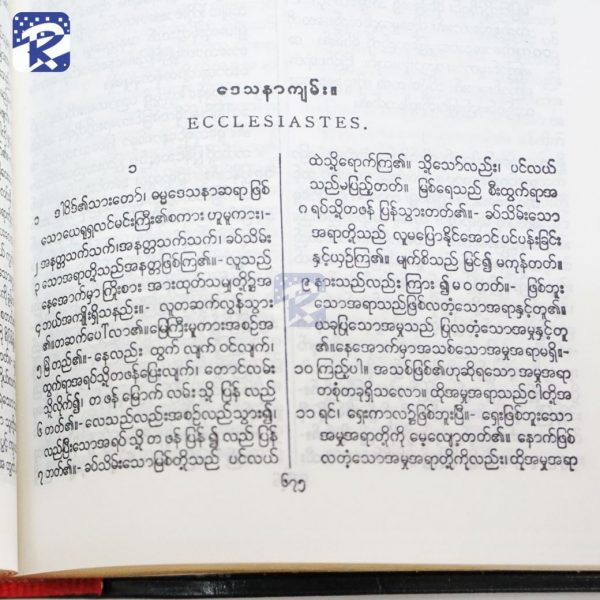 ဒေသနာကျမ်း။
ECCLESIASTES.
၁
၁ ဒါဝိဒ်၏သားတော်၊ ဓမ္မဒေသနာဆရာ ဖြစ်
သောယေရုရှလင်မင်းကြီး၏စကား ဟူမူကား၊-
၂ အနတ္တသက်သက်၊အနတ္တသက်သက်၊ ခပ်သိမ်း
၃ သောအရာတို့သည်အနတ္တဖြစ်ကြ၏။- လူသည်
နေအောက်မှာ ကြိုးစား အားထုတ်သမျှတို့၌အ
၄ ဘယ်အကျိုးရှိသနည်း။- လူတဆက်လွန်သွား
၏။တဆက်ပေါ်လာ၏။မြေကြီးမူကားအစဉ်အ
၅ မြဲတည်၏။- နေလည်း ထွက် လျက် ဝင်လျက်၊
ထွက်ရာအရပ်သို့တဖန်ပြေးလျက်၊ တောင်လမ်း
သို့လိုက်၍၊ တ ဖန် မြောက် လမ်း သို့ ပြန် လည်
၆ တတ်၏။- လေသည်လည်းအစဉ်လည်သွား၍၊
လည်ပြီးသောအရပ် သို့ တ ဖန် ပြန် ၍ လည် ပြန်
၇ ဘတ်၏။- ခပ်သိမ်းသောမြစ်တို့သည် ပင်လယ်
ထဲသို့ရောက်ကြ၏။ သို့သော်လည်း၊ ပင်လယ်
သည်မပြည့်တတ်။ မြစ်ရေသည် စီးထွက်ရာအ
၈ ရပ်သို့တဖန် ပြန်သွားတတ်၏။- ခပ်သိမ်းသော
အရာတို့သည် လူမပြောနိုင်အောင် ပင်ပန်းခြင်း
နှင့်ယှဉ်ကြ၏။ မျက်စိသည် မြင်၍ မကုန်တတ်။
၉ နားသည်လည်း ကြား ၍ မ ဝ တတ်။- ဖြစ်ဘူး
သောအရာသည်ဖြစ်လတံ့သောအရာနှင့်တူ၏။
ယခုပြုသောအမှုသည် ပြုလတံ့သောအမှုနှင့်တူ
၏။နေအောက်မှာအသစ်သောအမှုအရာမရှိ။-
၁၀ ကြည့်ပါ။ အသစ်ဖြစ်၏ဟုဆိုရသော အမှုအရာ
တစုံတခုရှိသလော။ ထိုအမှုအရာသည်ငါတို့အ
၁၁ ရင်၊ ရှေးကာလ၌ဖြစ်ဘူးပြီ။- ရှေးဖြစ်ဘူးသော
အမှုအရာတို့ကို မေ့လျော့တတ်၏။ နောက်ဖြစ်
လတံ့သောအမှုအရာတို့ကိုလည်း၊ထိုအမှုအရာ
၆၇၅